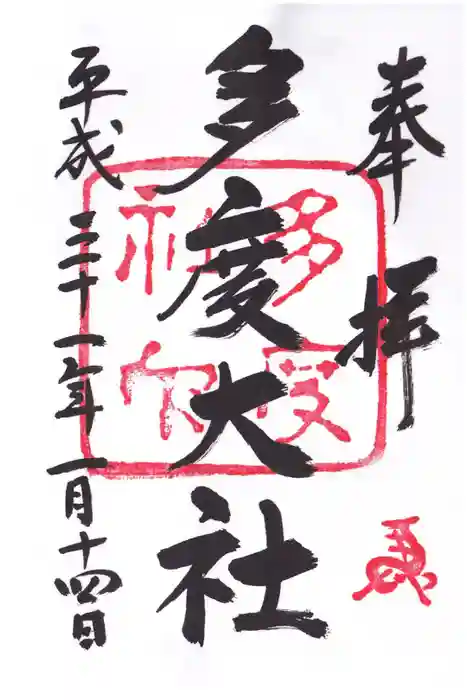 奉拝
多度大社
平成三十一年一月十四日
多度